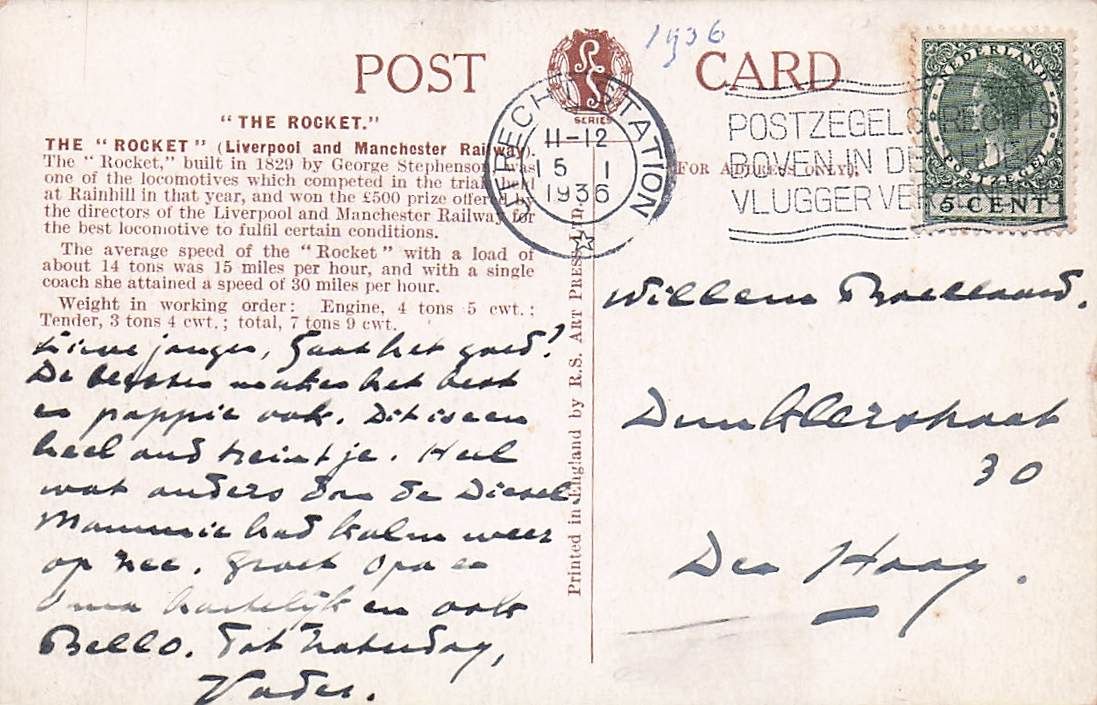 1936
POST CARD
SERIES
"THE ROCKET."
THE "ROCKET" (Liverpool and Manchester Railway).
The "Rocket," built in 1829 by George Stephenson, was
one of the locomotives which competed in the trial held
at Rainhill in that year, and won the £500 prize offered by
the directors of the Liverpool and Manchester Railway for
the best locomotive to fulfil certain conditions.
The average speed of the "Rocket" with a load of
about 14 tons was 15 miles per hour, and with a single
coach she attained a speed of 30 miles per hour.
Weight in working order: Engine, 4 tons 5 cwt.;
Tender, 3 tons 4 cwt.; total, 7 tons 9 cwt.
Lieve jongen, Gaat het goed?
De beesten maken het best
en pappie ook. Dit is een
heel oud treintje. Heel
wat anders dan de Diesel.
Mammie had kalm weer
op zee. Groet Opa en
Oma hartelijk en ook
Bello. Tot Zaterdag,
Vader.
Printed in England by R.S. ART PRESS LTD.
UTRECHT STATION
11-12
15 1
1936
(FOR ADDRESS ONLY).
POSTZEGELS RECHTS
BOVEN IN DE
VLUGGER
NEDERLAND
POSTZEGEL
5 CENT
Willem
30
Den Haag.